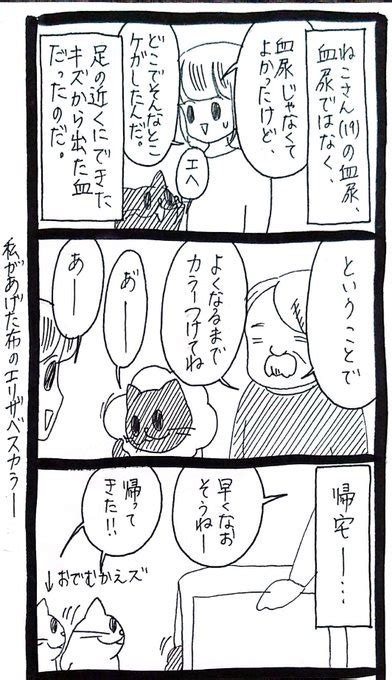 ねこさん(19)の血尿、
血尿ではなく、
血尿じゃなくて
よかったけど、
どこでそんなとこ
ケガしたんだ。
エヘ
足の近くにできた
キズから出た血
だったのだ。
ということで
よくなるまで
カラーつけてね
あ゛ー
あー
私があげた布のエリザベスカラー
帰宅ー…
早くなお
そうねー
帰って
きた!!
↓おでむかえズ